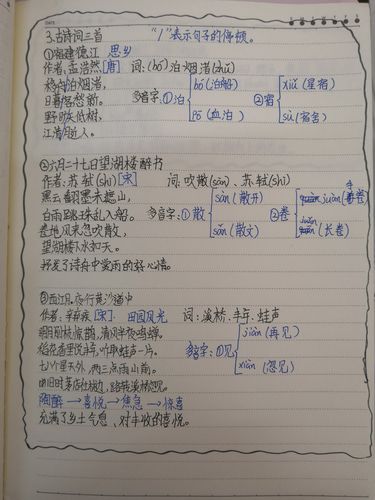 3.古诗词三首 "/"表示句子的停顿。
①宿建德江 思乡
作者:孟浩然[唐] 词:(bó)泊烟渚(zhǔ)
移舟泊烟渚,
日暮客愁新。 多音字:①泊 bó(泊船) ②宿 xiǔ(星宿)
野旷天低树, pō(血泊) sù(宿舍)
江清月近人。
②六月二十七日望湖楼醉书
作者:苏轼(shì)[宋] 词:吹散(sàn)、苏轼(shì)
黑云翻墨未遮山,
白雨跳珠乱入船。 多音字:①散 sàn(散开) ②卷
卷地风来忽吹散, sǎn(散文) juàn(长卷)
望湖楼下水如天。
抒发了诗人中爱雨的好心情。
③西江月·夜行黄沙道中
作者:辛弃疾[宋] 田园风光 词:溪桥、半年、蛙声
明月别枝惊鹊,清风半夜鸣蝉。 jiàn(再见)
稻花香里说丰年,听取蛙声一片。 多音字:①见
七八个星天外,两三点雨山前。 xiàn(忽见)
旧时茅店社林边,路转溪桥忽见。
陶醉→喜悦→焦急→惊喜
充满了乡土气息、对丰收的喜悦。